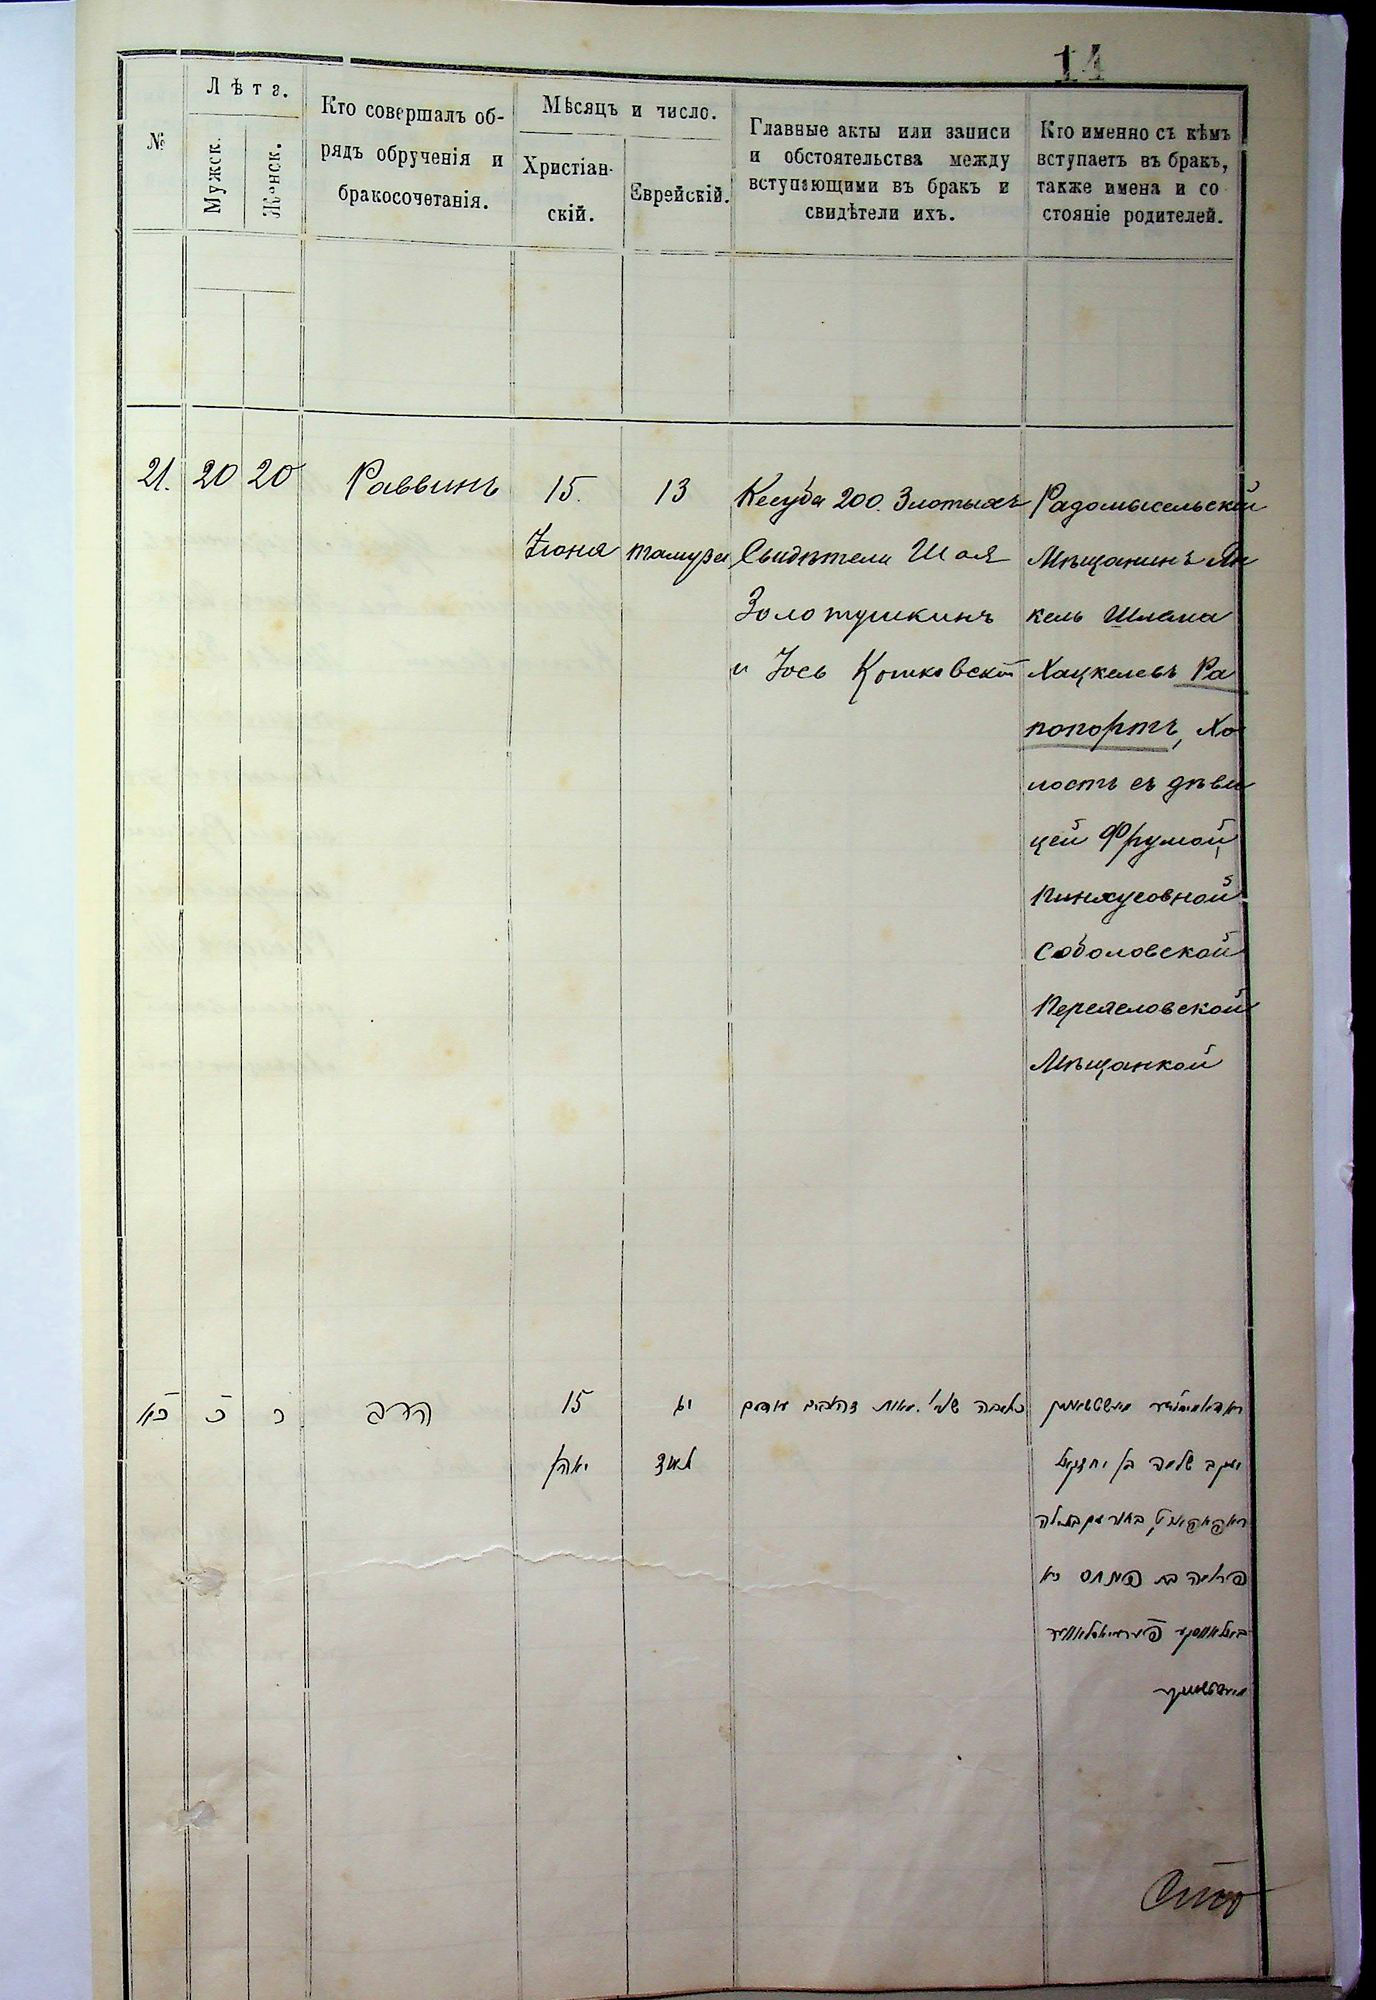 14
№
Лѣта.
Мужск.
Женск.
Кто совершалъ об-
рядъ обрученія и
бракосочетанія.
Мѣсяцъ и число.
Христіан-
скій.
Еврейскій.
Главные акты или записи
и обстоятельства между
вступающими въ бракъ и
свидѣтели ихъ.
Кто именно съ кѣмъ
вступаетъ въ бракъ,
также имена и со
стояніе родителей.
21.
20
20
Раввинъ
15.
Іюня
13
тамуза
Кесуба 200. Злотыхъ
Свидѣтели Шая
Золотушкинъ
и Іось Кошковскій
Радомысельскій
Мѣщанинъ Ян
кель Шлема
Хацкелевъ Ра
попортъ, Хо
лостъ съ дѣви
цей Фрумой,
Пинхусовной
Соболовской
Переяловской
Мѣщанкой
כא
כ
כ
הרב
15
יוני
יג
תמוז
כתובה שני מאות זהובים
יעקב שלמה בן יחזקאל
ראפאפורט, בחור עם בתולה
פרומה בת פנחס